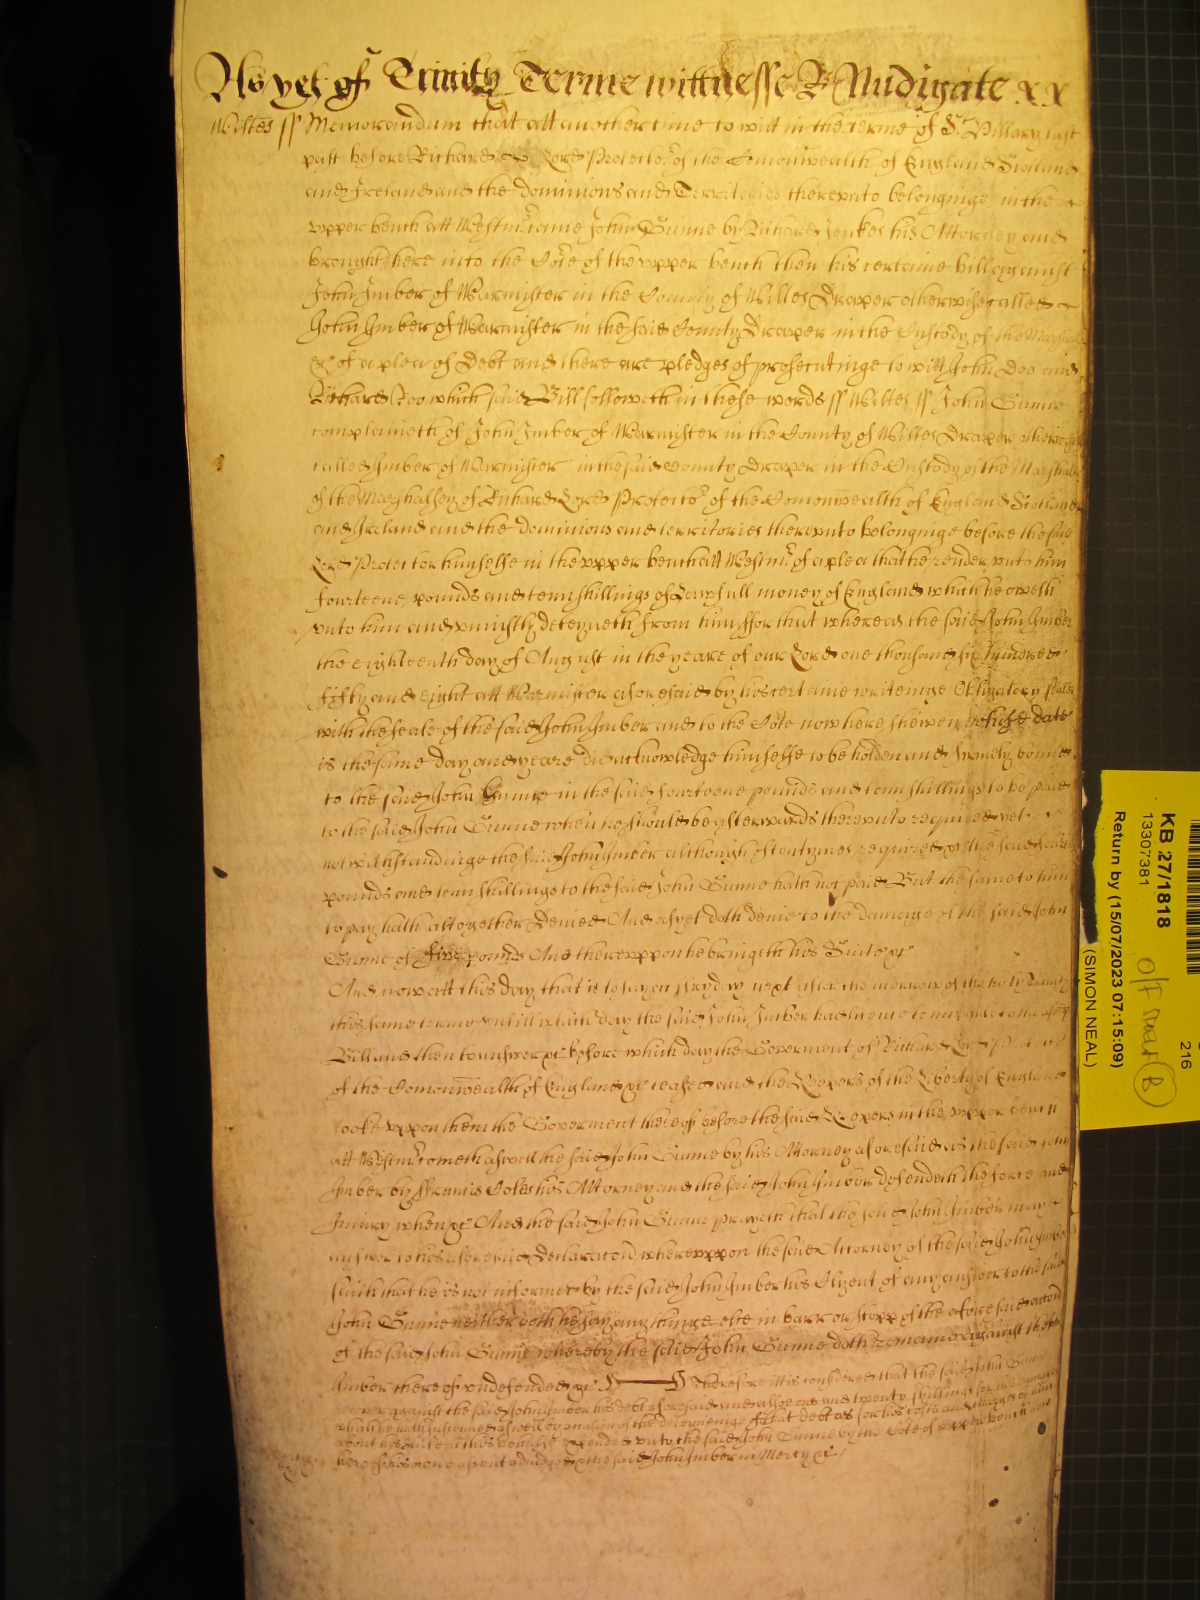 As yet of Trinity Terme wittnesse R Nudigate xx
Wiltes ss Memorandum that att another time to witt in the terme of St Hillary last
past before Richard Lord Protector of the Comonwealth of England Scotland
and Ireland and the dominions and Territories thereunto belonginge in the
upper bench att Westmr came John Gunne by Richard Jenkes his Attorney and
brought here into the Cote of the upper bench then his certaine bill against
John Imber of Warmister in the County of Wiltes Draper otherwise called
John Imber of Warmister in the said County Draper in the Custody of the Marshall
&c of a plea of Debt and there are pledges of prosecutinge to witt John Doo and
Richard Roo which said Bill followeth in these words ss Wiltes ss John Gunne
complaineth of John Imber of Warmister in the County of Wiltes Draper otherwise
called Imber of Warmister in the said County Draper in the Custody of the Marshall
of the Marshalsey of Richard Lord Protector of the Comonwealth of England Scotland
and Ireland and the dominions and territories thereunto belonginge before the said
Lord Protector himselfe in the upper bench att Westmr of a plea that he render unto him
fourteene pounds and tenn shillings of Lawfull money of England which he oweth
unto him and uniustly deteyneth from him ffor that whereas the said John Imber
the eighteenth day of August in the yeare of our Lord one thousand six hundred
fifty and eight att Warmister aforesaid by his certaine writeinge Obligatory seald
with the seale of the said John Imber and to the Cote now here shewen whose date
is the same day and yeare did acknowledge himselfe to be holden and firmely bound
to the said John Gunne in the said fourteene pounds and tenn shillings to be paid
to the said John Gunne when he should be afterwards thereunto required yet
notwithstandinge the said John Imber although oftentymes required &c the said fourteene
pounds and tenn shillings to the said John Gunne hath not paid But the same to him
to pay hath altogether Denied And as yet doth denie to the damage of the said John
Gunne of five pounds And thereuppon he bringeth his Suite &c
And now att this day that is to say on ffryday next after the morrow of the holy Trinity
this same terme untill which day the said John Imber had licence to imparle to the aforesaid
Bill and then to answer &c before which day the Goverment of Richard Lord Protector
of the Comonwealth of England &c ceased and the Keepers of the Liberty of England
tooke uppon them the Goverment thereof before the said Keepers in the upper bench
att Westmr cometh aswell the said John Gunne by his Attorney aforesaid as the said John
Imber by ffrancis Coles his Attorney and the said John Imber defendeth the force and
Iniury when &c And the said John Gunne prayeth that the said John Imber may
answer to his aforesaid declaracon whereuppon the said Attorney of the said John Imber
saith that he is not informed by the said John Imber his Clyent of any answer to the said
John Gunne neither doth he say any thinge else in barr or stopp of the aforesaid accon
of the said John Gunne whereby the said John Gunne doth remaine against the said John
Imber thereof undefended &c Therefore itt is considered that the said John Gunne
recover against the said John Imber his debt aforesaid and alsoe one and twenty shillings for his damages
which he hath susteined aswell by occasion of the deteyneinge of that debt as for his costs and charges by him
about his suite in this behalfe expended unto the said John Gunne by the Cote of upper bench now
here of his owne assent adiudged &c the said John Imber in Mercy &c
KB 27/1818
13307381
Return by (15/07/2023 07:15:09)
(SIMON NEAL)
216
B